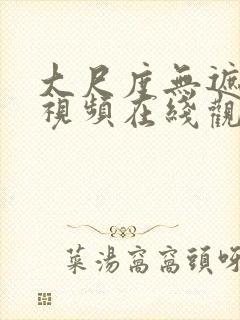 大尺度無遮
視頻在綫觀
菜湯窩窩頭呀